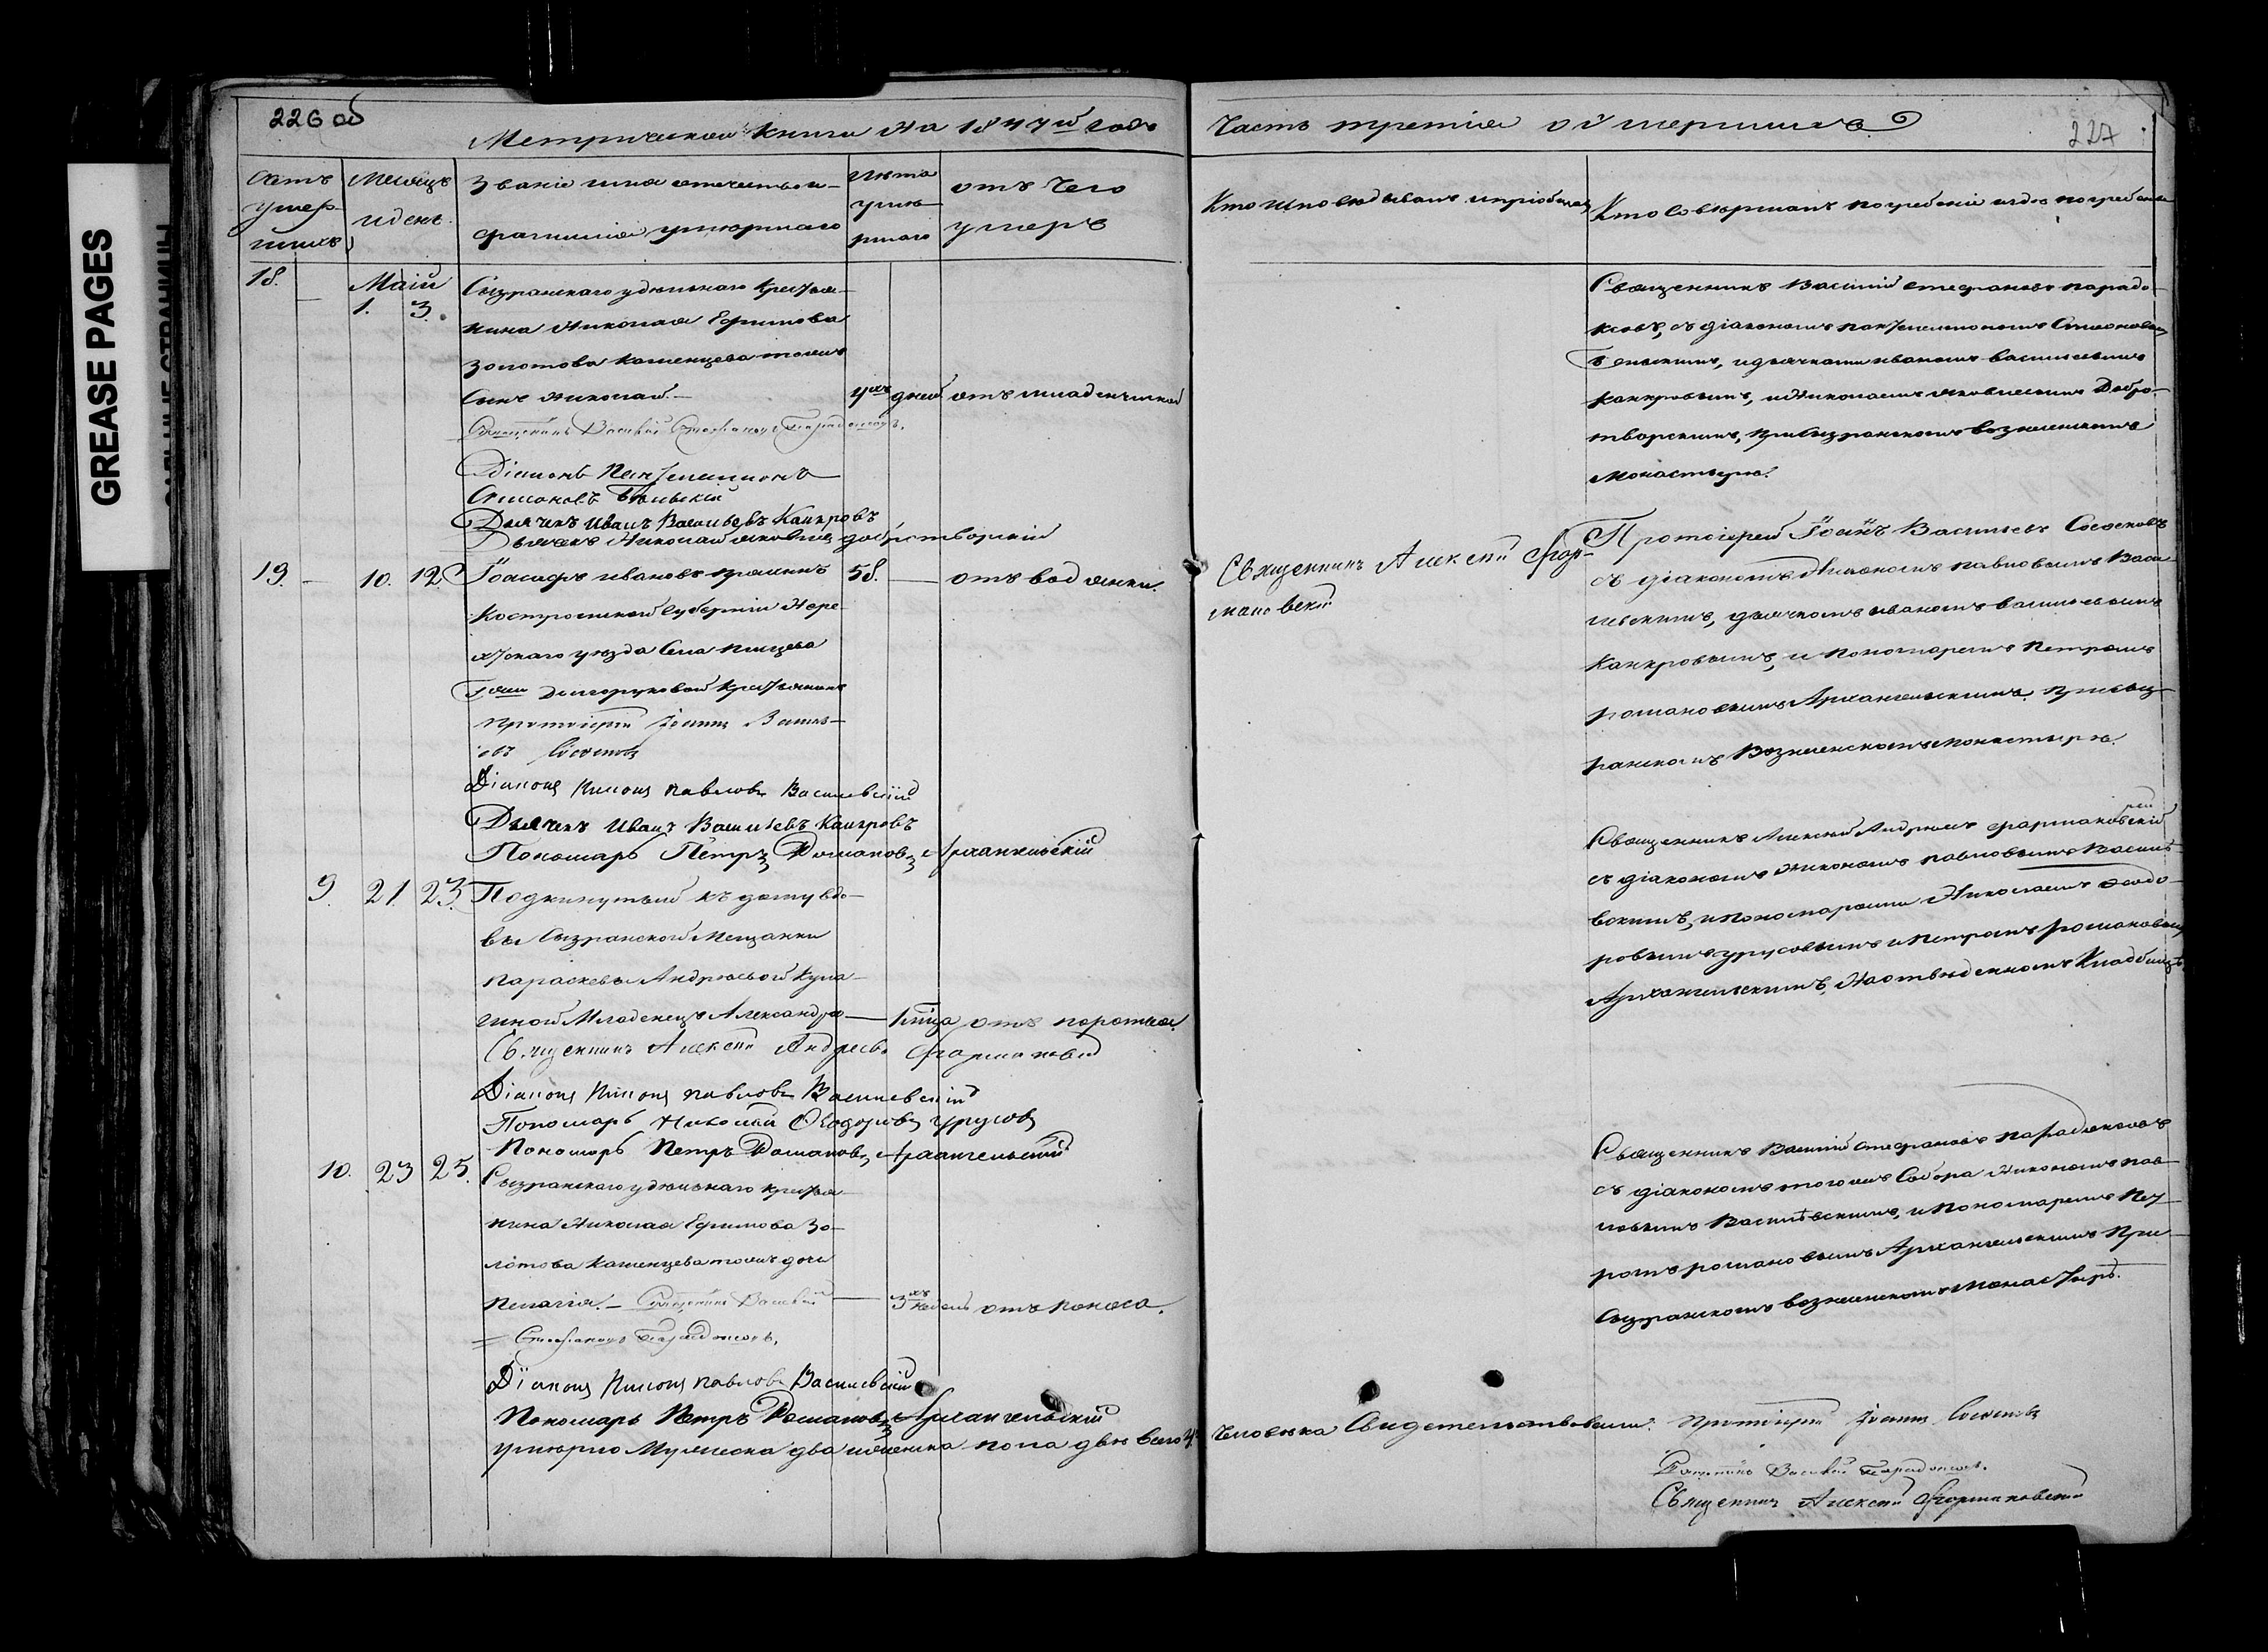 GREASE PAGES
226 об
Метрическая книга на 1844й годъ
Часть третiя о умершихъ
227
Счетъ умер-шихъ
Месяцъ и день
Званiе имя отечество и фамилiя умершаго
Лета умершаго
отъ чего умеръ
Кто исповедывалъ и прiобщалъ
Кто совершалъ погребенiе и где погребены
18. Маiй 1. 3.
Сызранскаго удельнаго крестья-
нина Николая Ефимова
Золотова Каменцева тожъ
сынъ Николай
дней отъ младенческой
Священникъ Василiй Стефановъ Парадоксовъ.
Дiаконъ Пантелеимонъ
Симоновъ Бельскiй
Дьячекъ Иванъ Васильевъ Канкровъ
Дьячекъ Николай Яковлевъ Добротворскiй
Священникъ Василiй Стефановъ Парадо-
ксовъ, съ дiакономъ Пантелеимономъ Симоновымъ
Бельскимъ, и дьячками Иваномъ Васильевымъ
Канкровымъ, и Николаемъ Яковлевымъ Добро-
творскимъ, при Сызранскомъ Вознесенскомъ
Монастыре.
19. 10. 12.
Iоасафъ Ивановъ
58. отъ водянки.
Костромской Губернiи Нере-
хтскаго уезда Села
Долгоруковой крестьянинъ
Протоiерей Iоаннъ Василь-
евъ
Дiаконъ Никонъ Павловъ Василевскiй
Дьячекъ Иванъ Васильевъ Канкровъ
Пономарь Петръ Романовъ Архангельскiй
Священникъ Алексей Фар-
маковскiй
Протоiерей Iоаннъ Васильевъ
съ дiакономъ Никономъ Павловымъ Васи-
левскимъ, дьячкомъ Иваномъ Васильевымъ
Канкровымъ, и пономаремъ Петромъ
Романовымъ Архангельскимъ при Сыз-
ранскомъ Вознесенскомъ монастыре.
9. 21. 23.
Подкинутый къ дому вдо-
вы Сызранской Мещанки
Параскевы Андреевой Кула-
гиной Младенецъ Александръ
отъ
Священникъ Алексей Андреевъ Фармаковскiй
Дiаконъ Никонъ Павловъ Василевскiй
Пономарь Николай Феодоровъ Урусовъ
Пономарь Петръ Романовъ Архангельскiй
Священникъ Алексей Андреевъ Фармаковскiй
съ дiакономъ Никономъ Павловымъ Василе-
вскимъ, и пономарями Николаемъ Феодо-
ровымъ Урусовымъ и Петромъ Романовымъ
Архангельскимъ, на отведенномъ Кладбище
10. 23 25.
Сызранскаго удельнаго крестья-
нина Николая Ефимова Зо-
лотова Каменцева тожъ дочь
Пелагiя. Священникъ Василiй
3хъ недель отъ поноса.
Стефановъ Парадоксовъ.
Дiаконъ Никонъ Павловъ Василевскiй
Пономарь Петръ Романовъ Архангельскiй
Священникъ Василiй Стефановъ Парадоксовъ
съ дiакономъ того же Собора Никономъ Пав-
ловымъ Василевскимъ, и пономаремъ Пет-
ромъ Романовымъ Архангельскимъ при
Сызранскомъ Вознесенскомъ Монастыре.
умерло мужеска два и женска пола две всего 4 человека Свидетельствовали: Протоiерей Iоаннъ
Священникъ Василiй Парадоксовъ.
Священникъ Алексей Фармаковскiй